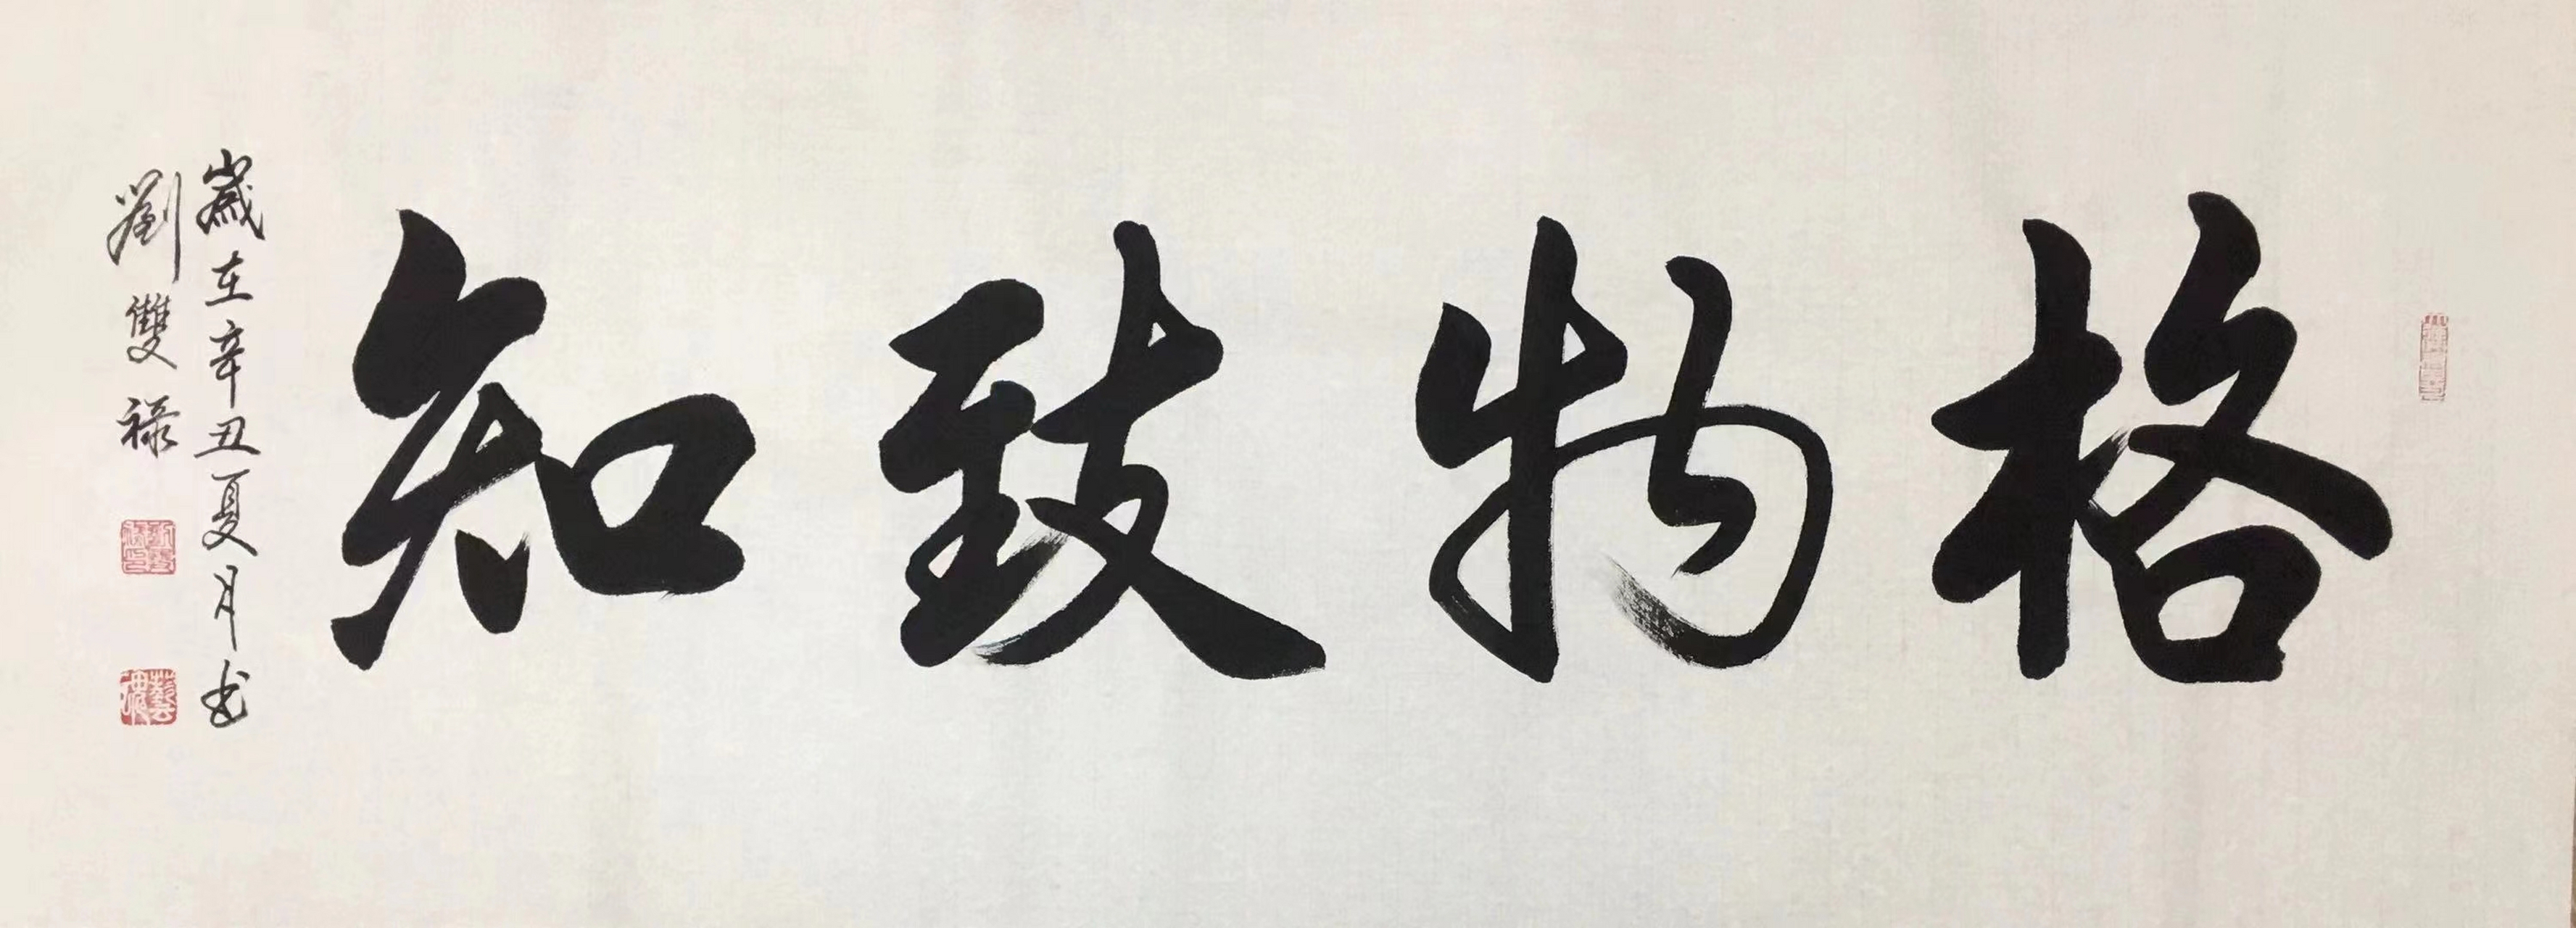 格物致知
歲在辛丑夏月书
劉雙禄